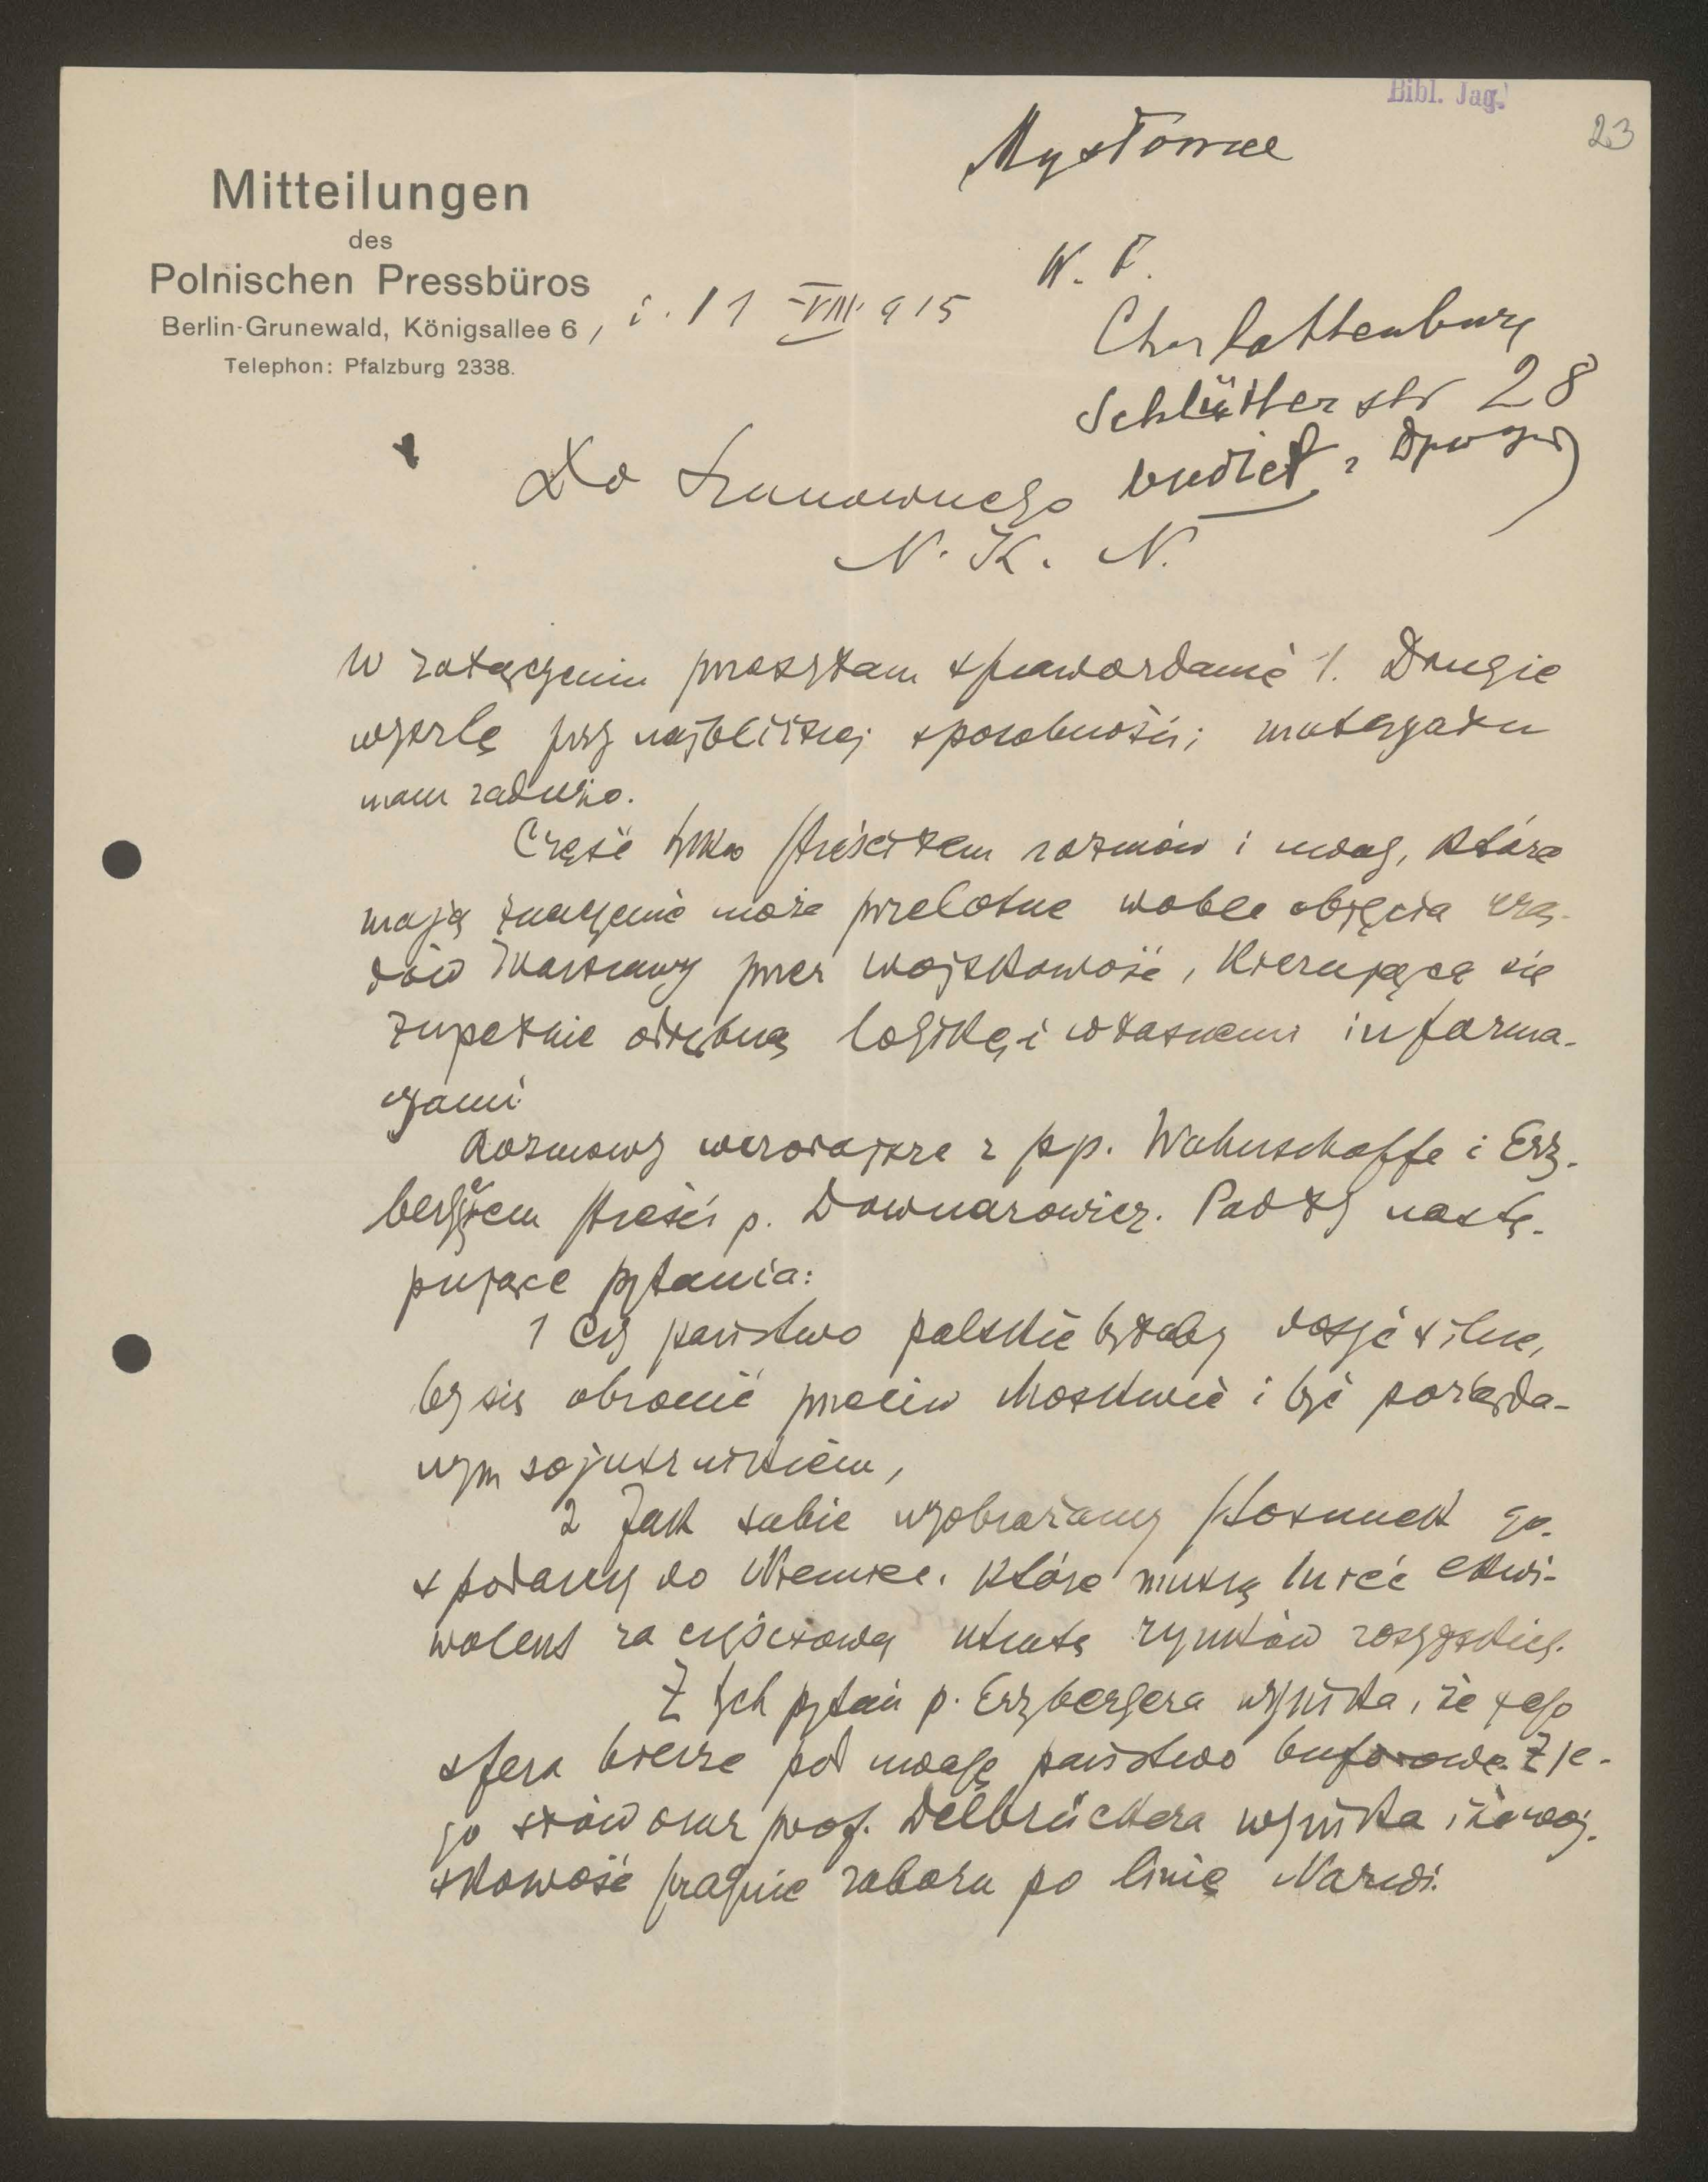 Bibl. Jag.
23
Mysłowice
Mitteilungen
des
Polnischen Pressbüros
Berlin-Grunewald, Königsallee 6, i. 11 VIII. 915
Telephon: Pfalzburg 2338.
W. F.
Charlottenburg
Schlütterstr 28
Do Szanownego
N. K. N.
W załączeniu przesyłam sprawozdanie 1. Drugie
wyszlę przy najbliższej sposobności; materyału
mam zadużo.
Część tylko streściłem rozmów i uwag, które
mają znaczenie może przelotne wobec objęcia urzę-
dów Warszawy przez wojskowość, kierującą się
zupełnie odrębną logiką i własnemi informa-
cyami.
Rozmowy wczorajsze z pp. Wahnschaffe i Erz-
bergerem streści p. Downarowicz. Padły nastę-
pujące pytania:
1 Czy państwo polskie byłoby dosyć silne,
by się obronić przeciw Moskwie i być pożąda-
nym sojusznikiem,
2 Jak sobie wyobrażamy stosunek go-
spodarczy do Niemiec, które muszą mieć ekwi-
walent za częściową utratę rynków rosyjskich.
Z tych pytań p. Erzbergera wynika, że jego
sfera bierze pod uwagę państwo buforowe. Z je-
go słów oraz prof. Delbrückera wynika, że woj-
skowość pragnie zaboru po linię Narwi.